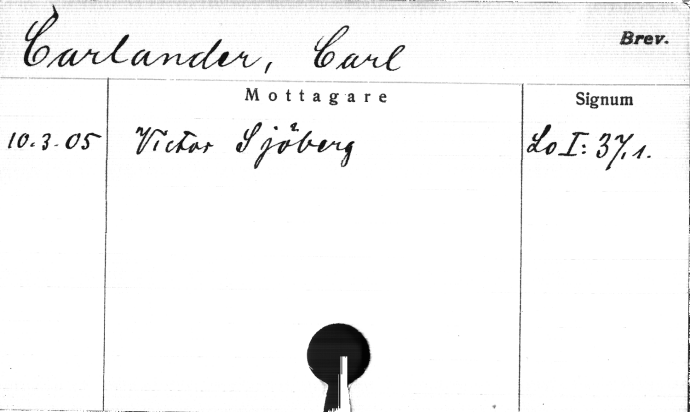 Carlander, Carl
Brev.
Mottagare
Signum
10.3.05 Victor Sjöberg Lo I: 37,1.